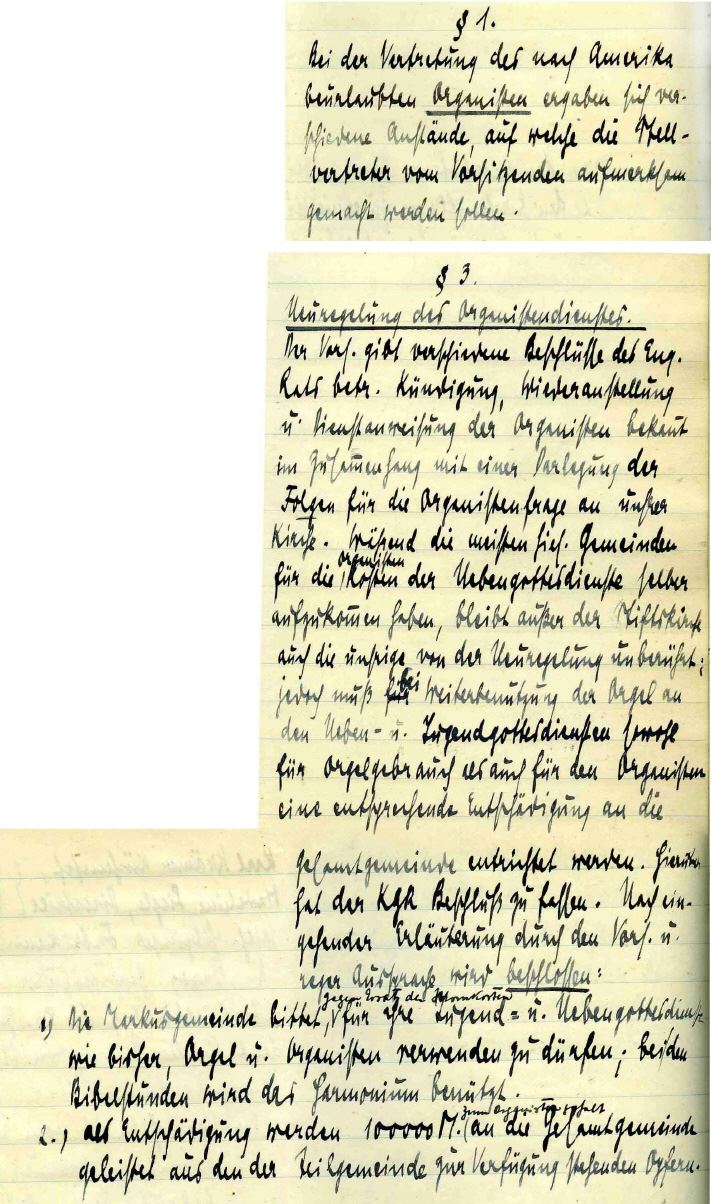 § 1.
Bei der Vertretung des nach Amerika
beurlaubten Organisten ergaben sich ver-
schiedene Anstände, auf welche die Stell-
vertreter vom Vorsitzenden aufmerksam
gemacht werden sollen.
§ 3.
Neuregelung des Organistendienstes.
Der Vors. gibt verschiedene Beschlüsse des Eng.
Rats betr. Kündigung, Wiederanstellung
u. Dienstanweisung der Organisten bekannt
im Zusammenhang mit einer Darlegung der
Folgen für die Organistenfrage an unsrer
Kirche. Während die meisten hies. Gemeinden
für die Organisten
Kosten der Nebengottesdienste selber
aufzukommen haben, bleibt außer der Stiftskirche
auch die unsrige von der Neuregelung unberührt;
jedoch muß bei Weiterbenutzung der Orgel an
den Neben- u. Jugendgottesdiensten sowohl
für Orgelgebrauch als auch für den Organisten
eine entsprechende Entschädigung an die
Gesamtgemeinde entrichtet werden. Hierüber
hat der KGR Beschluß zu fassen. Nach ein-
gehender Erläuterung durch den Vors. u.
reger Aussprache wird beschlossen:
gegen Ersatz der
1) Die Markusgemeinde bittet, für ihre Jugend- u. Nebengottesdienste
wie bisher, Orgel u. Organisten verwenden zu dürfen; bei den
Bibelstunden wird das Harmonium benützt.
2.) als Entschädigung werden 100000 M. an die Gesamtgemeinde
geleistet aus den der Teilgemeinde zur Verfügung stehenden Opfern.